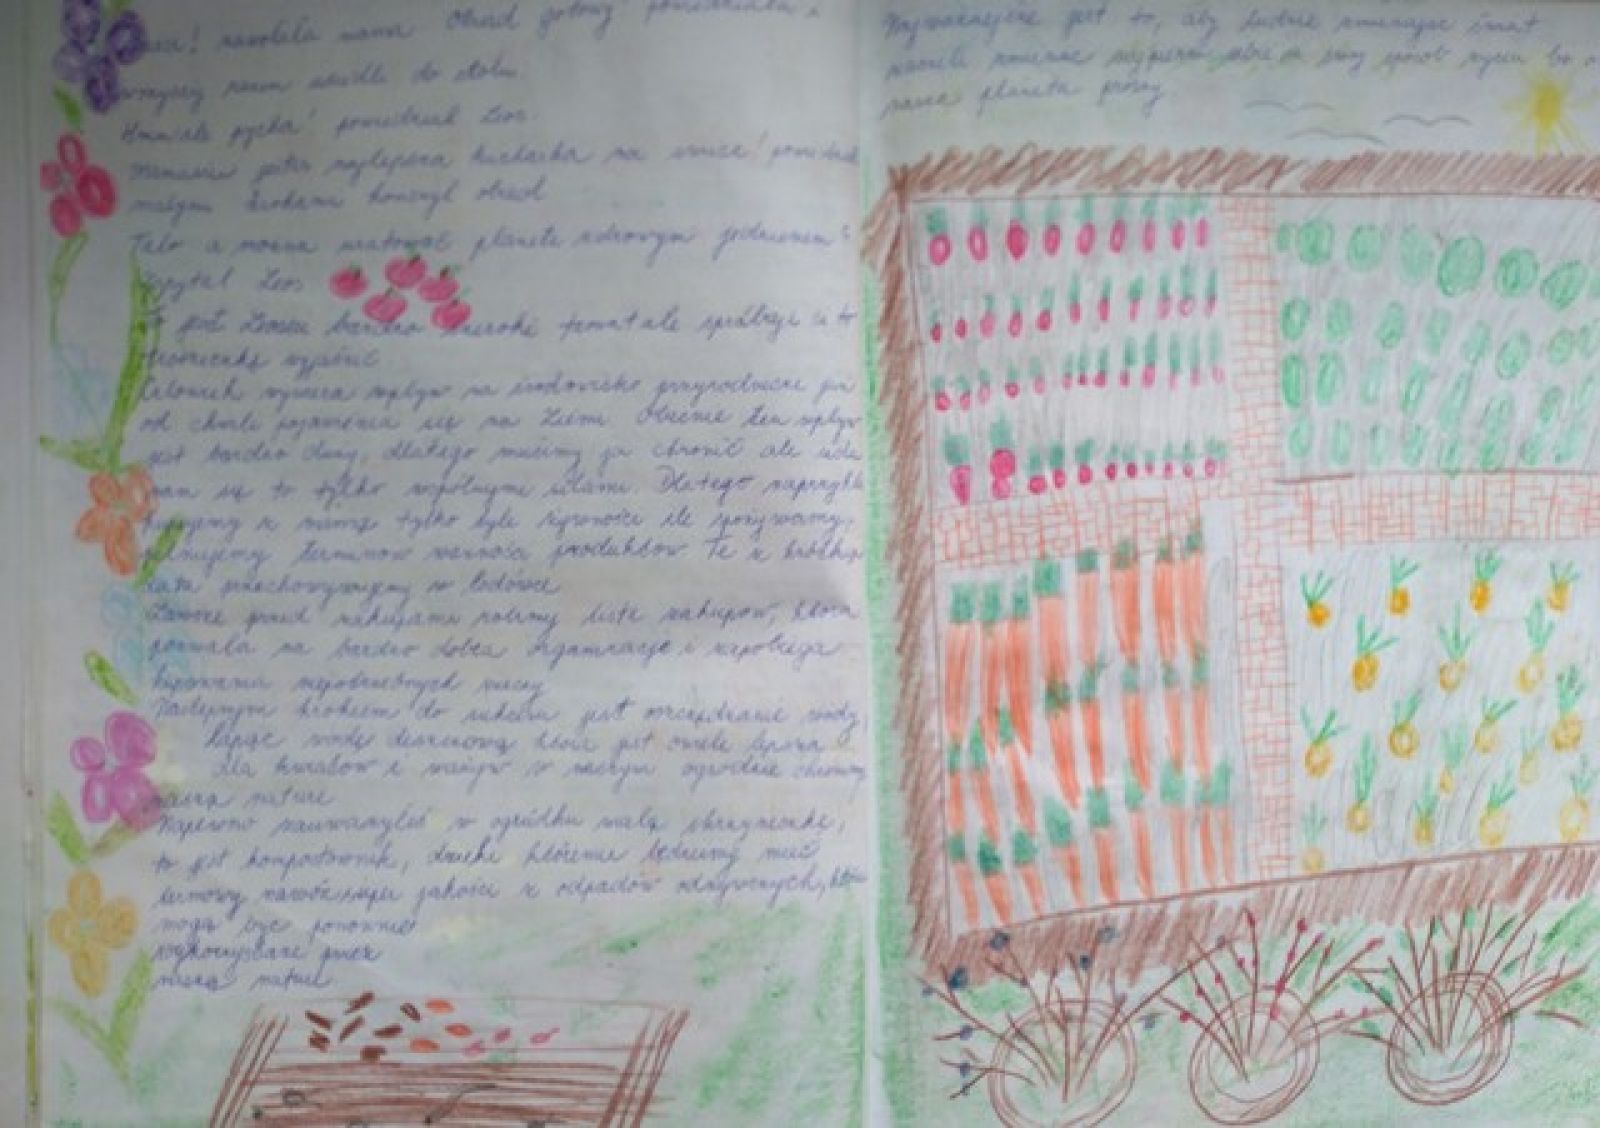 ! zawołała mama Obiad gotowy powiedziała,
wszyscy razem siedli do stołu.
Hmm ale pycha! powiedział Leos.
mamusiu jesteś najlepsza kucharka na świecie! powiedział
małymi krokami kończył obiad
Tato a można uratować planetę zdrowym jedzeniem?
zapytał Leos
To jest Leosiu bardzo szeroki temat ale spróbuję ci to
troszeczkę wyjaśnić.
Człowiek wywiera wpływ na środowisko przyrodnicze już
od chwili pojawienia się na Ziemi. Obecnie ten wpływ
jest bardzo duży, dlatego musimy ją chronić ale uda
nam się to tylko wspólnymi siłami. Dlatego naprzykład
kupujemy z mamą tylko tyle żywności ile spożywamy,
pilnujemy terminów ważności produktów. Te z krótką
datą przechowywujemy w lodówce
Zawsze przed zakupami robimy listę zakupów, która
pozwala na bardzo dobrą organizację i zapobiega
kupowania niepotrzebnych rzeczy
Następnym krokiem do sukcesu jest oszczędzanie wody,
Łapiąc wodę deszczową która jest o wiele lepsza
dla kwiatów i warzyw w naszym ogrodzie chronimy
naszą naturę
Napewno zauważyłeś w ogródku małą skrzyneczkę,
to jest kompostownik, dzięki któremu będziemy mieć
darmowy nawóz super jakości z odpadów odżywczych, które
mogą być ponownie
wykorzystane przez
naszą naturę.
Najważniejsze jest to, aby ludzie zmieniając świat
zaczęli zmieniać najpierw siebie i swój sposób życia bo
nasza planeta prosi.